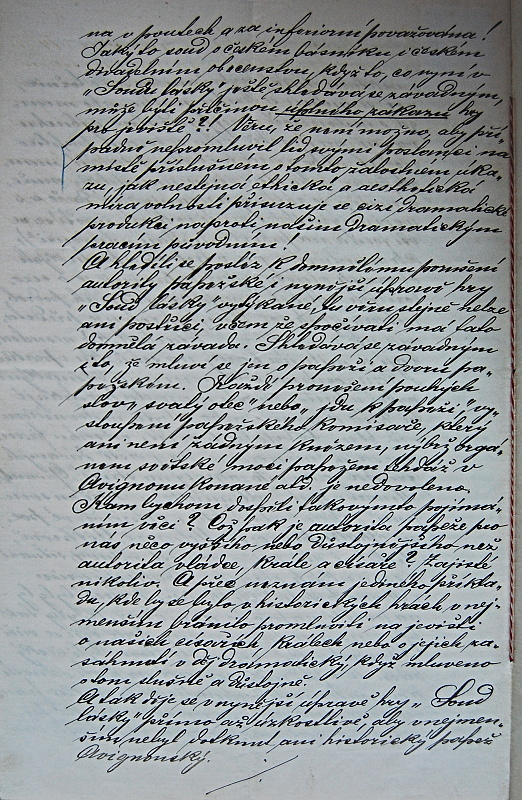 na v poutech a za inferiorní považována!
Jaký to soud o českém básníku i českém
divadelním obecenstvu, když to, co nyní v
„Soudu lásky“ ještě shledává se závadným,
může býti příčinou úplného zákazu hry
pro jeviště?! Věru, že není možno, aby pří-
padně nepromluvil lid svými poslanci na
místě příslušném o tomto žalostném úka-
zu, jak nestejná ethická a aesthetická
míra volnosti přisuzuje se cizí dramatické
produkci naproti našim dramatickým
pracím původním!
A hledíli se posléz k domnělému porušení
autority papežské i nynější úpravě hry
„Soud lásky“ vytýkané, tu věru stejně nelze
ani postřici, v čem že spočívati má tato
domnělá závada. Shledává se závadným
i to, že mluví se jen o papeži a dvoru pa-
pežském. Každé pronešení pouhých
slov „svatý otec“ nebo „jdu k papeži“, vy-
stoupení papežského komisaře, který
ani není žádným knězem, nýbrž orgá-
nem světské moci papežem tehdáž v
Avignonu konané atd. je nedovoleno.
Kam bychom dospěli takovýmto pojímá-
ním věcí? Což pak je autorita papeže pro
nás něco vyššího nebo důstojnějšího než
autorita vládce, krále a císaře? Zajisté
nikoliv. A přec neznám jednoho příkla-
du, kde by se bylo v historických hrách v nej-
menším bránilo promluviti na jevišti
o našich císařích, králech nebo o jejich za-
sáhnutí v děj dramatický, když mluveno
o tom slušně a důstojně.
A tak děje se v nynější úpravě hry „Soud
lásky“ přímo až úzkostlivě, aby v nejmen-
ším nebyl dotknut ani historický papež
Avignonský.